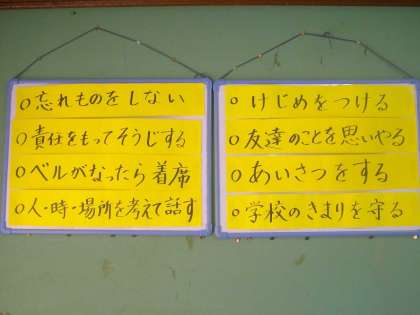 ○忘れものをしない
○責任をもってそうじする
○ベルがなったら着席
○人・時・場所を考えて話す
○けじめをつける
○友達のことを思いやる
○あいさつをする
○学校のきまりを守る